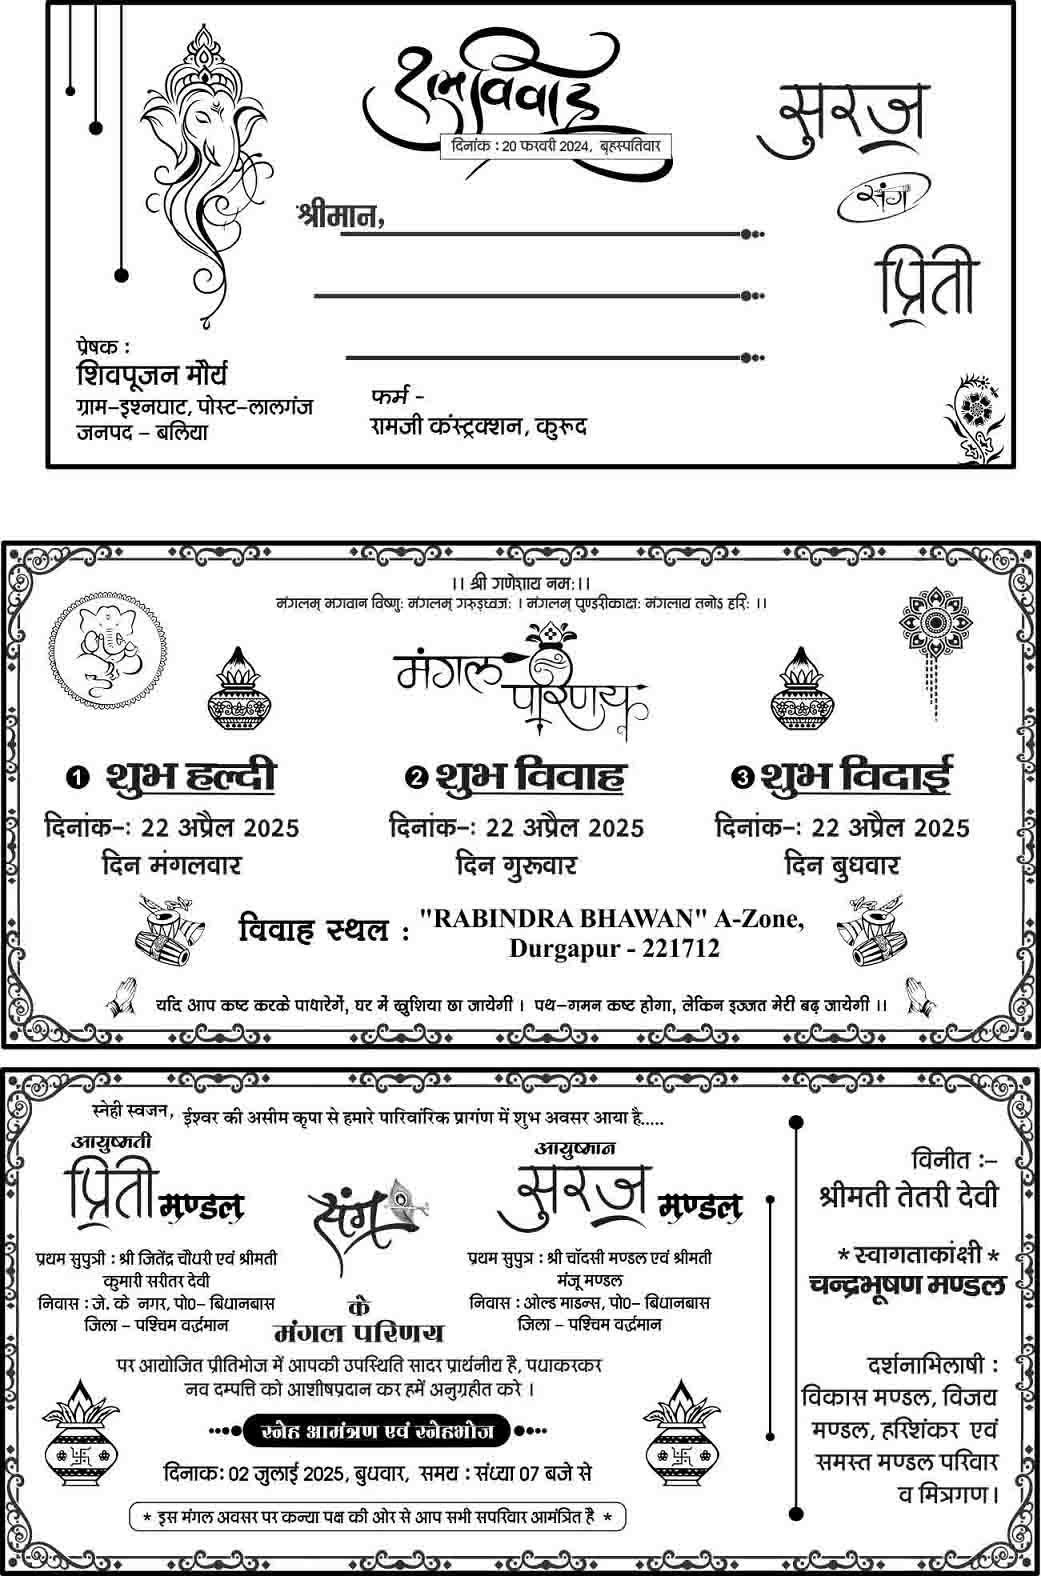 शुभ विवाह
दिनांक : 20 फरवरी 2024, बृहस्पतिवार
सुरज
संग
प्रिती
श्रीमान,
प्रेषक :
शिवपूजन मौर्य
ग्राम-इश्नघाट, पोस्ट-लालगंज
जनपद - बलिया
फर्म -
रामजी कंस्ट्रक्शन, कुरूद
।। श्री गणेशाय नमः।।
मंगलम् भगवान विष्णुः मंगलम् गरुड़ध्वजः । मंगलम् पुण्डरीकाक्षः मंगलाय तनोऽ हरिः ।।
मंगल परिणय
1 शुभ हल्दी
दिनांक-: 22 अप्रैल 2025
दिन मंगलवार
2 शुभ विवाह
दिनांक-: 22 अप्रैल 2025
दिन गुरूवार
3 शुभ विदाई
दिनांक-: 22 अप्रैल 2025
दिन बुधवार
विवाह स्थल : "RABINDRA BHAWAN" A-Zone,
Durgapur - 221712
यदि आप कष्ट करके पाधारेगें, घर में खुशिया छा जायेगी । पथ-गमन कष्ट होगा, लेकिन इज्जत मेरी बढ़ जायेगी ।।
स्नेही स्वजन, ईश्वर की असीम कृपा से हमारे पारिवांरिक प्रागंण में शुभ अवसर आया है.....
आयुष्मती
प्रिती मण्डल
प्रथम सुपुत्री : श्री जितेंद्र चौधरी एवं श्रीमती
कुमारी सरीतर देवी
निवास : जे. के नगर, पो0- बिधानबास
जिला - पश्चिम वर्द्धमान
संग
आयुष्मान
सुरज मण्डल
प्रथम सुपुत्र : श्री चाँदसी मण्डल एवं श्रीमती
मंजू मण्डल
निवास : ओल्ड माइन्स, पो0- बिधानबास
जिला - पश्चिम वर्द्धमान
के
मंगल परिणय
पर आयोजित प्रीतिभोज में आपकी उपस्थिति सादर प्रार्थनीय है, पधाकरकर
नव दम्पत्ति को आशीषप्रदान कर हमें अनुग्रहीत करे ।
स्नेह आमंत्रण एवं स्नेहभोज
दिनाकः 02 जुलाई 2025, बुधवार, समय : संध्या 07 बजे से
* इस मंगल अवसर पर कन्या पक्ष की ओर से आप सभी सपरिवार आमंत्रित है *
विनीत :-
श्रीमती तेतरी देवी
* स्वागताकांक्षी *
चन्द्रभूषण मण्डल
दर्शनाभिलाषी :
विकास मण्डल, विजय
मण्डल, हरिशंकर एवं
समस्त मण्डल परिवार
व मित्रगण।